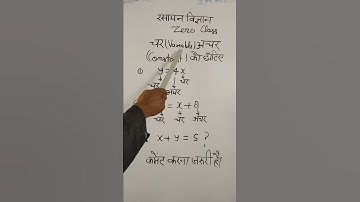 रसायन विज्ञान
Zero Class
चर (Variable) अचर
(Constant) को छाँटिए
① y = 4x
चर चर
अचर
= x + 8
चर चर अचर
x + y = 5 ?
कमेंट करना जरूरी है।